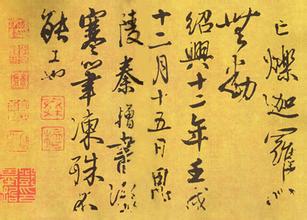 亡爍迦羅心
無動
紹興十二年壬戌
十二月十五日
陵秦書
寒筆凍殊不
能工也